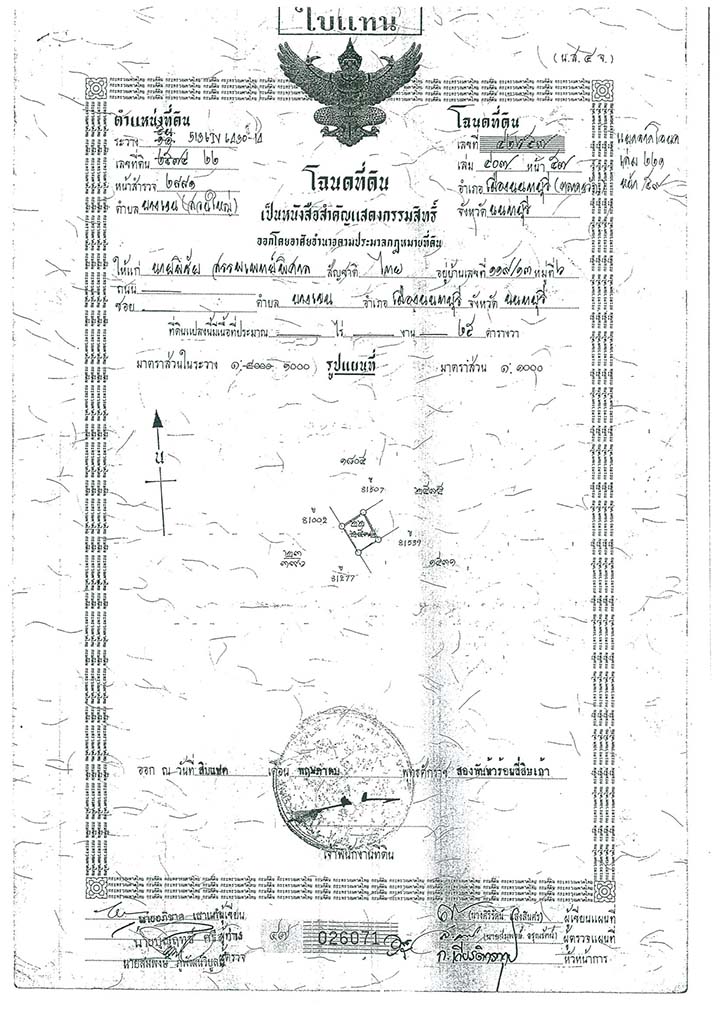 ใบแทน
(น.ส.๔ จ.)
ตำแหน่งที่ดิน
ระวาง 5136 IV 6830-14
เลขที่ดิน ๒๕๓๔ ๒๒
หน้าสำรวจ ๒๙๙๑
ตำบล บางเขน (สวนใหญ่)
โฉนดที่ดิน
เลขที่
เล่ม ๕๐๗ หน้า ๕๗
อำเภอ เมืองนนทบุรี (ตลาดขวัญ)
จังหวัด นนทบุรี
เล่ม ๒๒๑
หน้า ๕๙
โฉนดที่ดิน
เป็นหนังสือสำคัญแสดงกรรมสิทธิ์
ออกโดยอาศัยอำนาจตามประมวลกฎหมายที่ดิน
ให้แก่ นายพิชัย สรรพแพทย์พิศาล สัญชาติ ไทย อยู่บ้านเลขที่ ๑๑๙/๑๓ หมู่ที่ ๖
ถนน
ซอย ตำบล บางเขน อำเภอ เมืองนนทบุรี จังหวัด นนทบุรี
ที่ดินแปลงนี้มีเนื้อที่ประมาณ ไร่ งาน ๒๕ ตารางวา
มาตราส่วนในระวาง ๑:๔๐๐๐ ๑๐๐๐ รูปแผนที่ มาตราส่วน ๑:๑๐๐๐
น
๑๘๐๔
81307
๒๕๓๕
81002
๒๒
81539
๒๓
๓๙๐
81277
๑๔๓๑
ออก ณ วันที่ สิบแปด เดือน พฤษภาคม พุทธศักราช สองพันห้าร้อยสี่สิบเก้า
เจ้าพนักงานที่ดิน
ผู้เขียน
ผู้ตรวจแผนที่
ผู้เขียนแผนที่
หัวหน้าการ
๔๗
026071